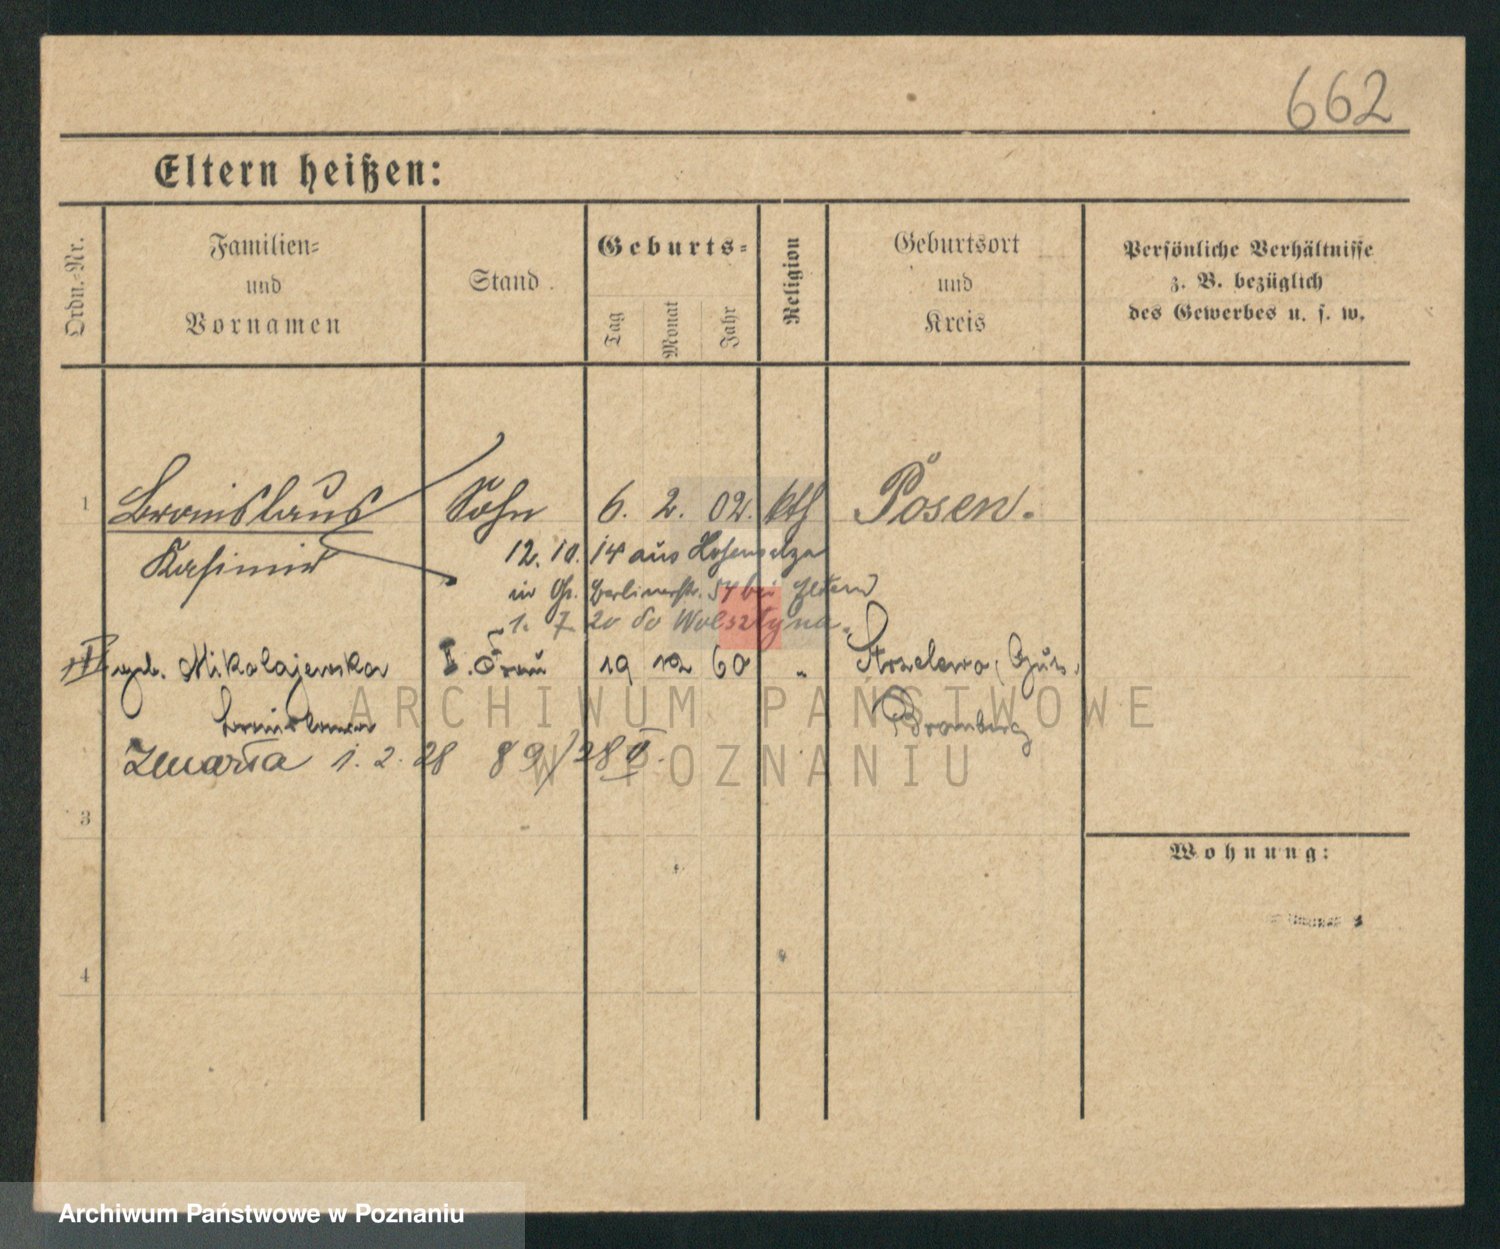 662
Eltern heißen:
Ordn.-Nr.
Familien-
und
Vornamen
Stand.
Geburts-
Tag
Monat
Jahr
Religion
Geburtsort
und
Kreis
Persönliche Verhältnisse
z. B. bezüglich
des Gewerbes u. s. w.
1 Bronislaus Sohn 6. 2. 02. kth Posen.
Kasimir 12. 10. 14 aus Hohensalza
in Gr. Berlinerstr. 54 bei Eltern
1. 7 20 do Wolsztyna.
II geb. Mikolajewska II. Frau 19 12 60 " Strzelewo,
Bronislawa Bromberg
Zmarła 1. 2. 28 89/28 II.
3
Wohnung:
4
ARCHIWUM PAŃSTWOWE
W POZNANIU
Archiwum Państwowe w Poznaniu